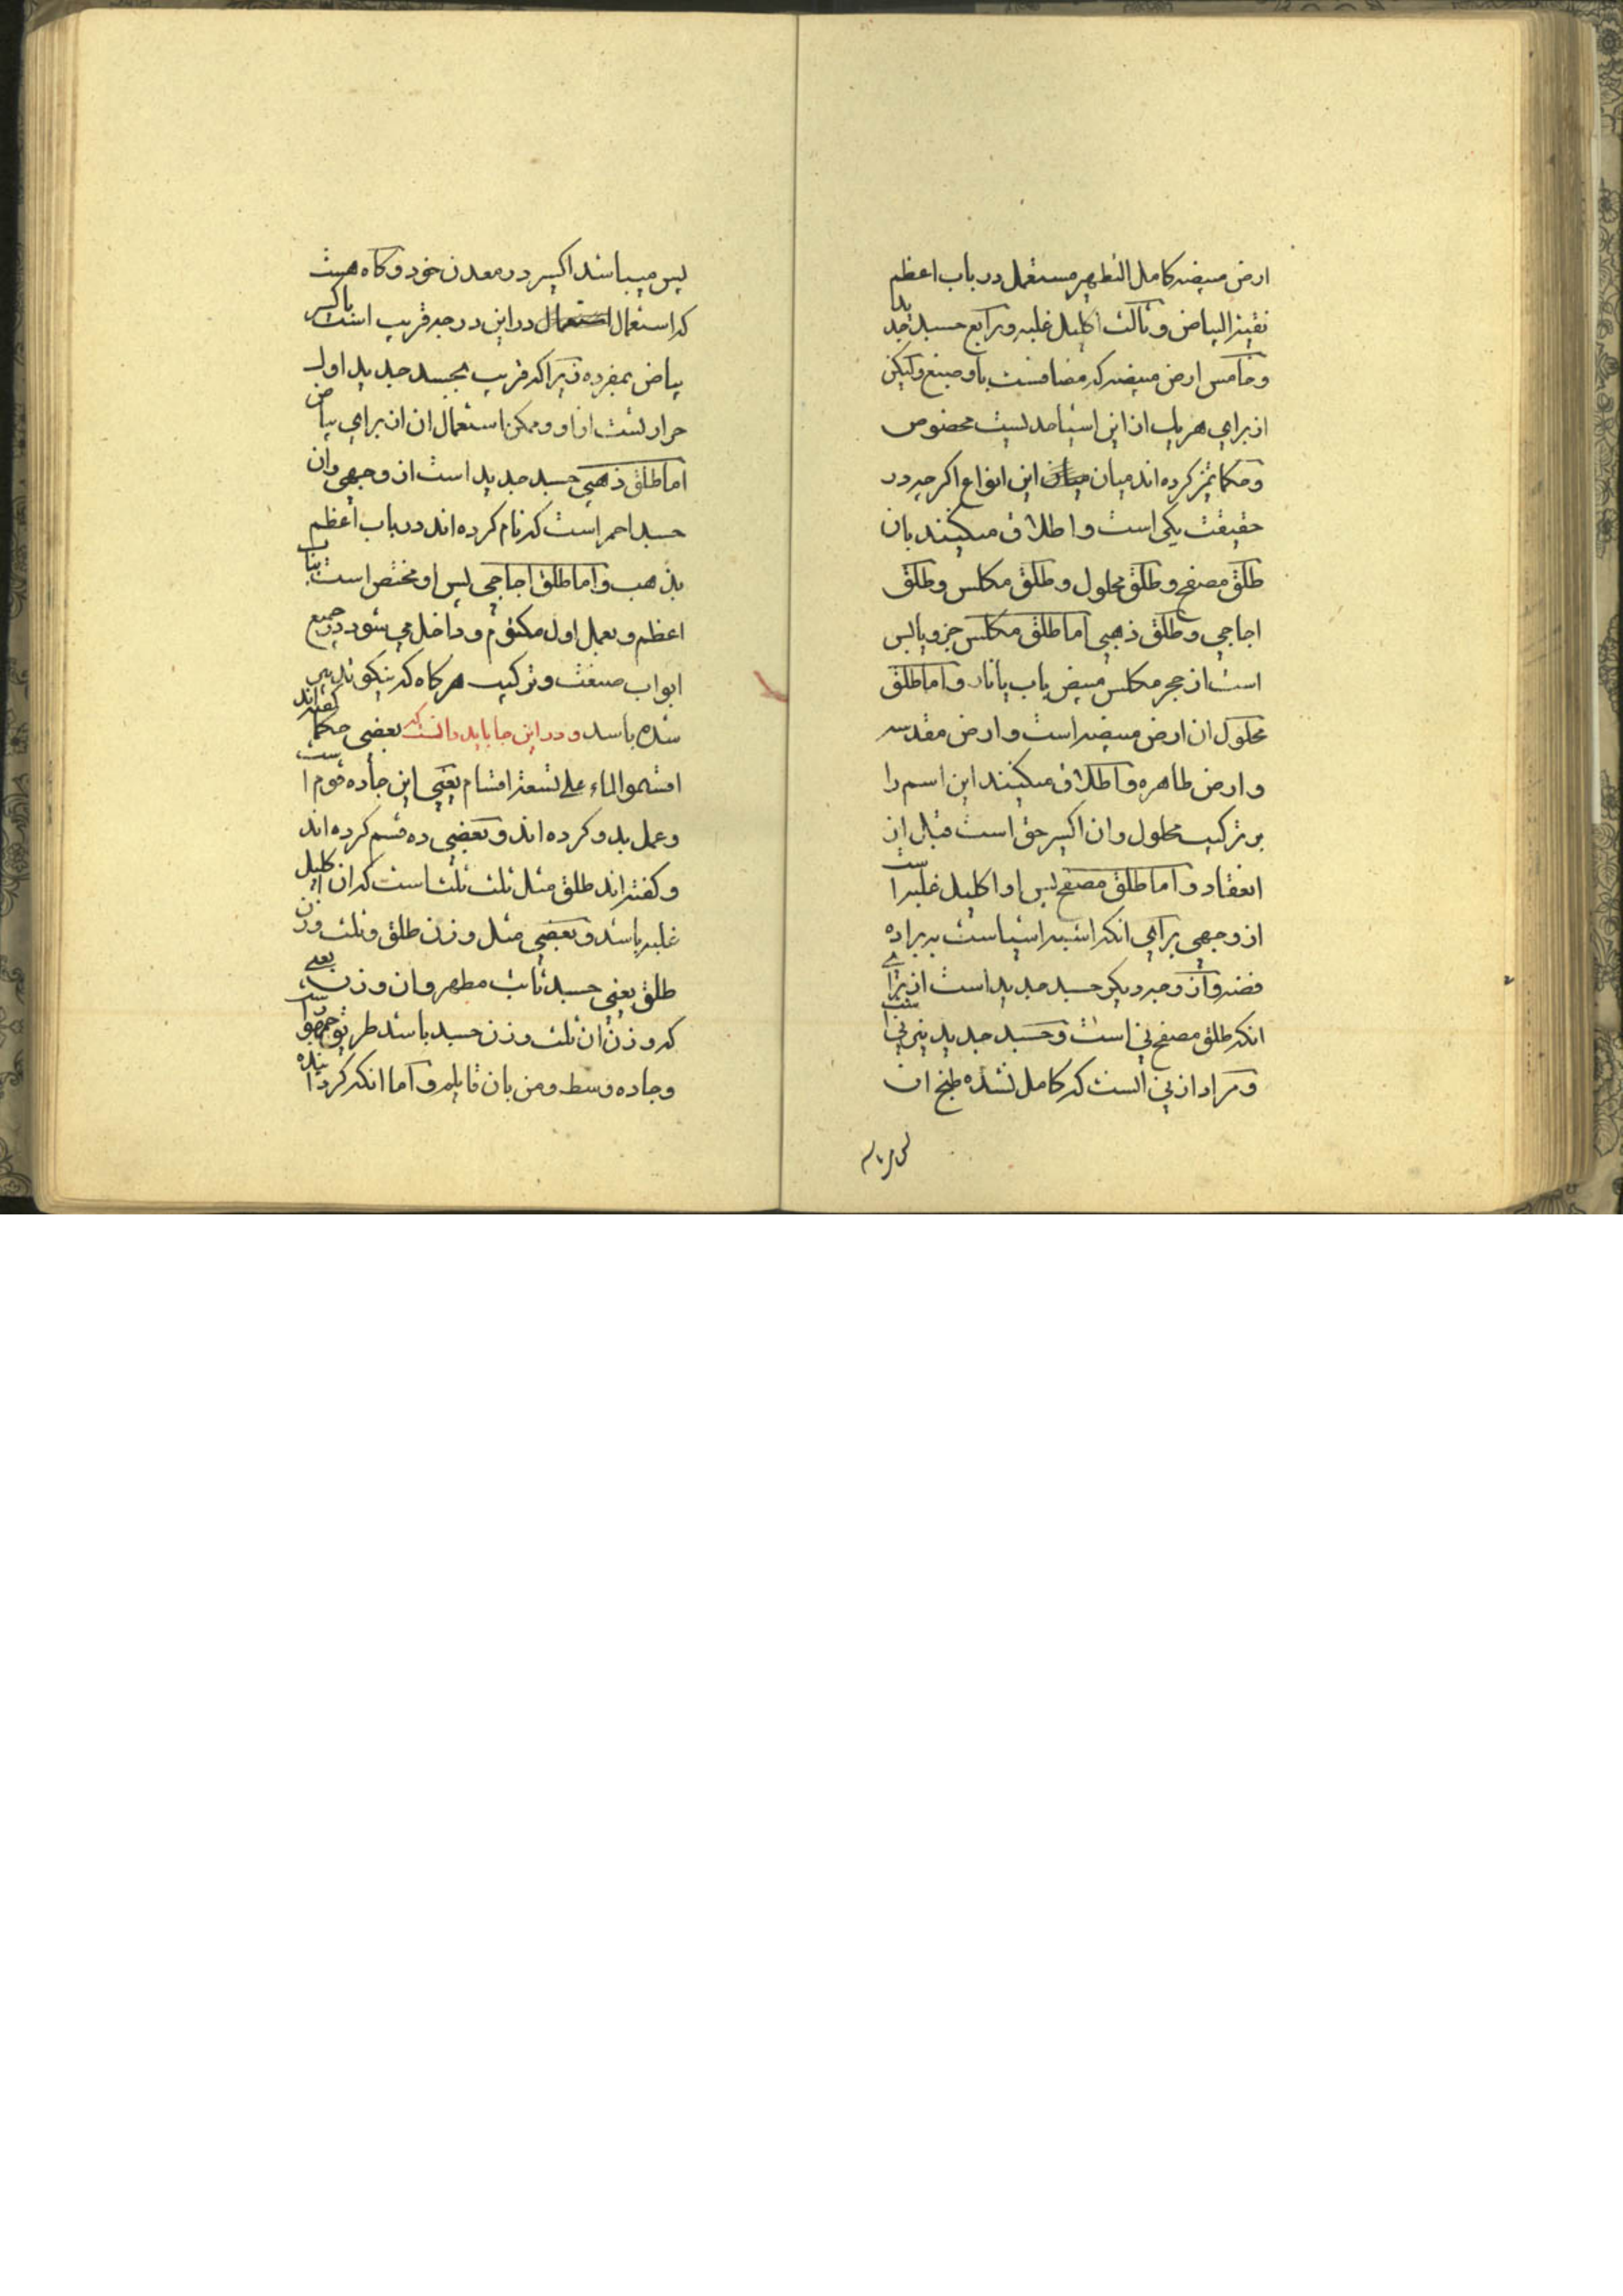 ارض مبیضه کامل التطهیر مستعمل در باب اعظم
نقیة البیاض و ثالث اکلیل غلبه و رابع جسد جدید
و خامس ارض مبیضه که مضافست باو صبغ و لیکن
از برای هر یک از این اسما حدیست مخصوص
و حکما تمیز کرده اند میان این انواع اکر چه در
حقیقت یکی است و اطلاق میکنند بان
طلق مصفح و طلق محلول و طلق مکلس و طلق
اجاجی و طلق ذهبی اما طلق مکلس جزو یابس
است از حجر مکلس مبیض باب یا نار و اما طلق
محلول ان ارض مبیضه است و ارض مقدسه
و ارض طاهره و اطلاق میکنند این اسم را
بر ترکیب محلول و ان اکسیر حق است قبل از
انعقاد و اما طلق مصفح پس او اکلیل غلبه است
از وجهی برای انکه اشبه اشیاست به براده
فضه و از وجه دیکر جسد جدید است از برای
انکه طلق مصفح نی است و جسد جدید نیز نی است
و مراد از نی انست که کامل نشده طبخ ان
پس میباشد اکسیر در معدن خود و کاه هست
که استعمال در این درجه قریب است باکسیر
بیاض بمفرده زیرا که قریب بجسد جدید اول
حرارتست از او و ممکن استعمال ان از برای بیاض
اما طلق ذهبی جسد جدید است از وجهی و ان
جسد احمر است که نام کرده اند در باب اعظم
بذهب و اما طلق اجاجی پس او مختص است بباب
اعظم و بعمل اول مکتوم و داخل می شود در جمیع
ابواب صنعت و ترکیب هر کاه که نیکو تدبیر
شده باشد و در این جا باید دانست که بعضی حکما گفته اند
اقسموا الماء علی تسعة اقسام یعنی این جاده قوم است
و عمل بدو کرده اند و بعضی ده قسم کرده اند
و کفته اند طلق مثل ثلث ثلث است که ان اکلیل
غلبه باشد و بعضی مثل وزن طلق و ثلث وزن
طلق یعنی جسد ثابت مطهر و ان وزن یعنی
که وزن ان ثلث وزن جسد باشد طریق جمهور است
و جاده وسط و من بان قایلم و اما انکه کردانیده